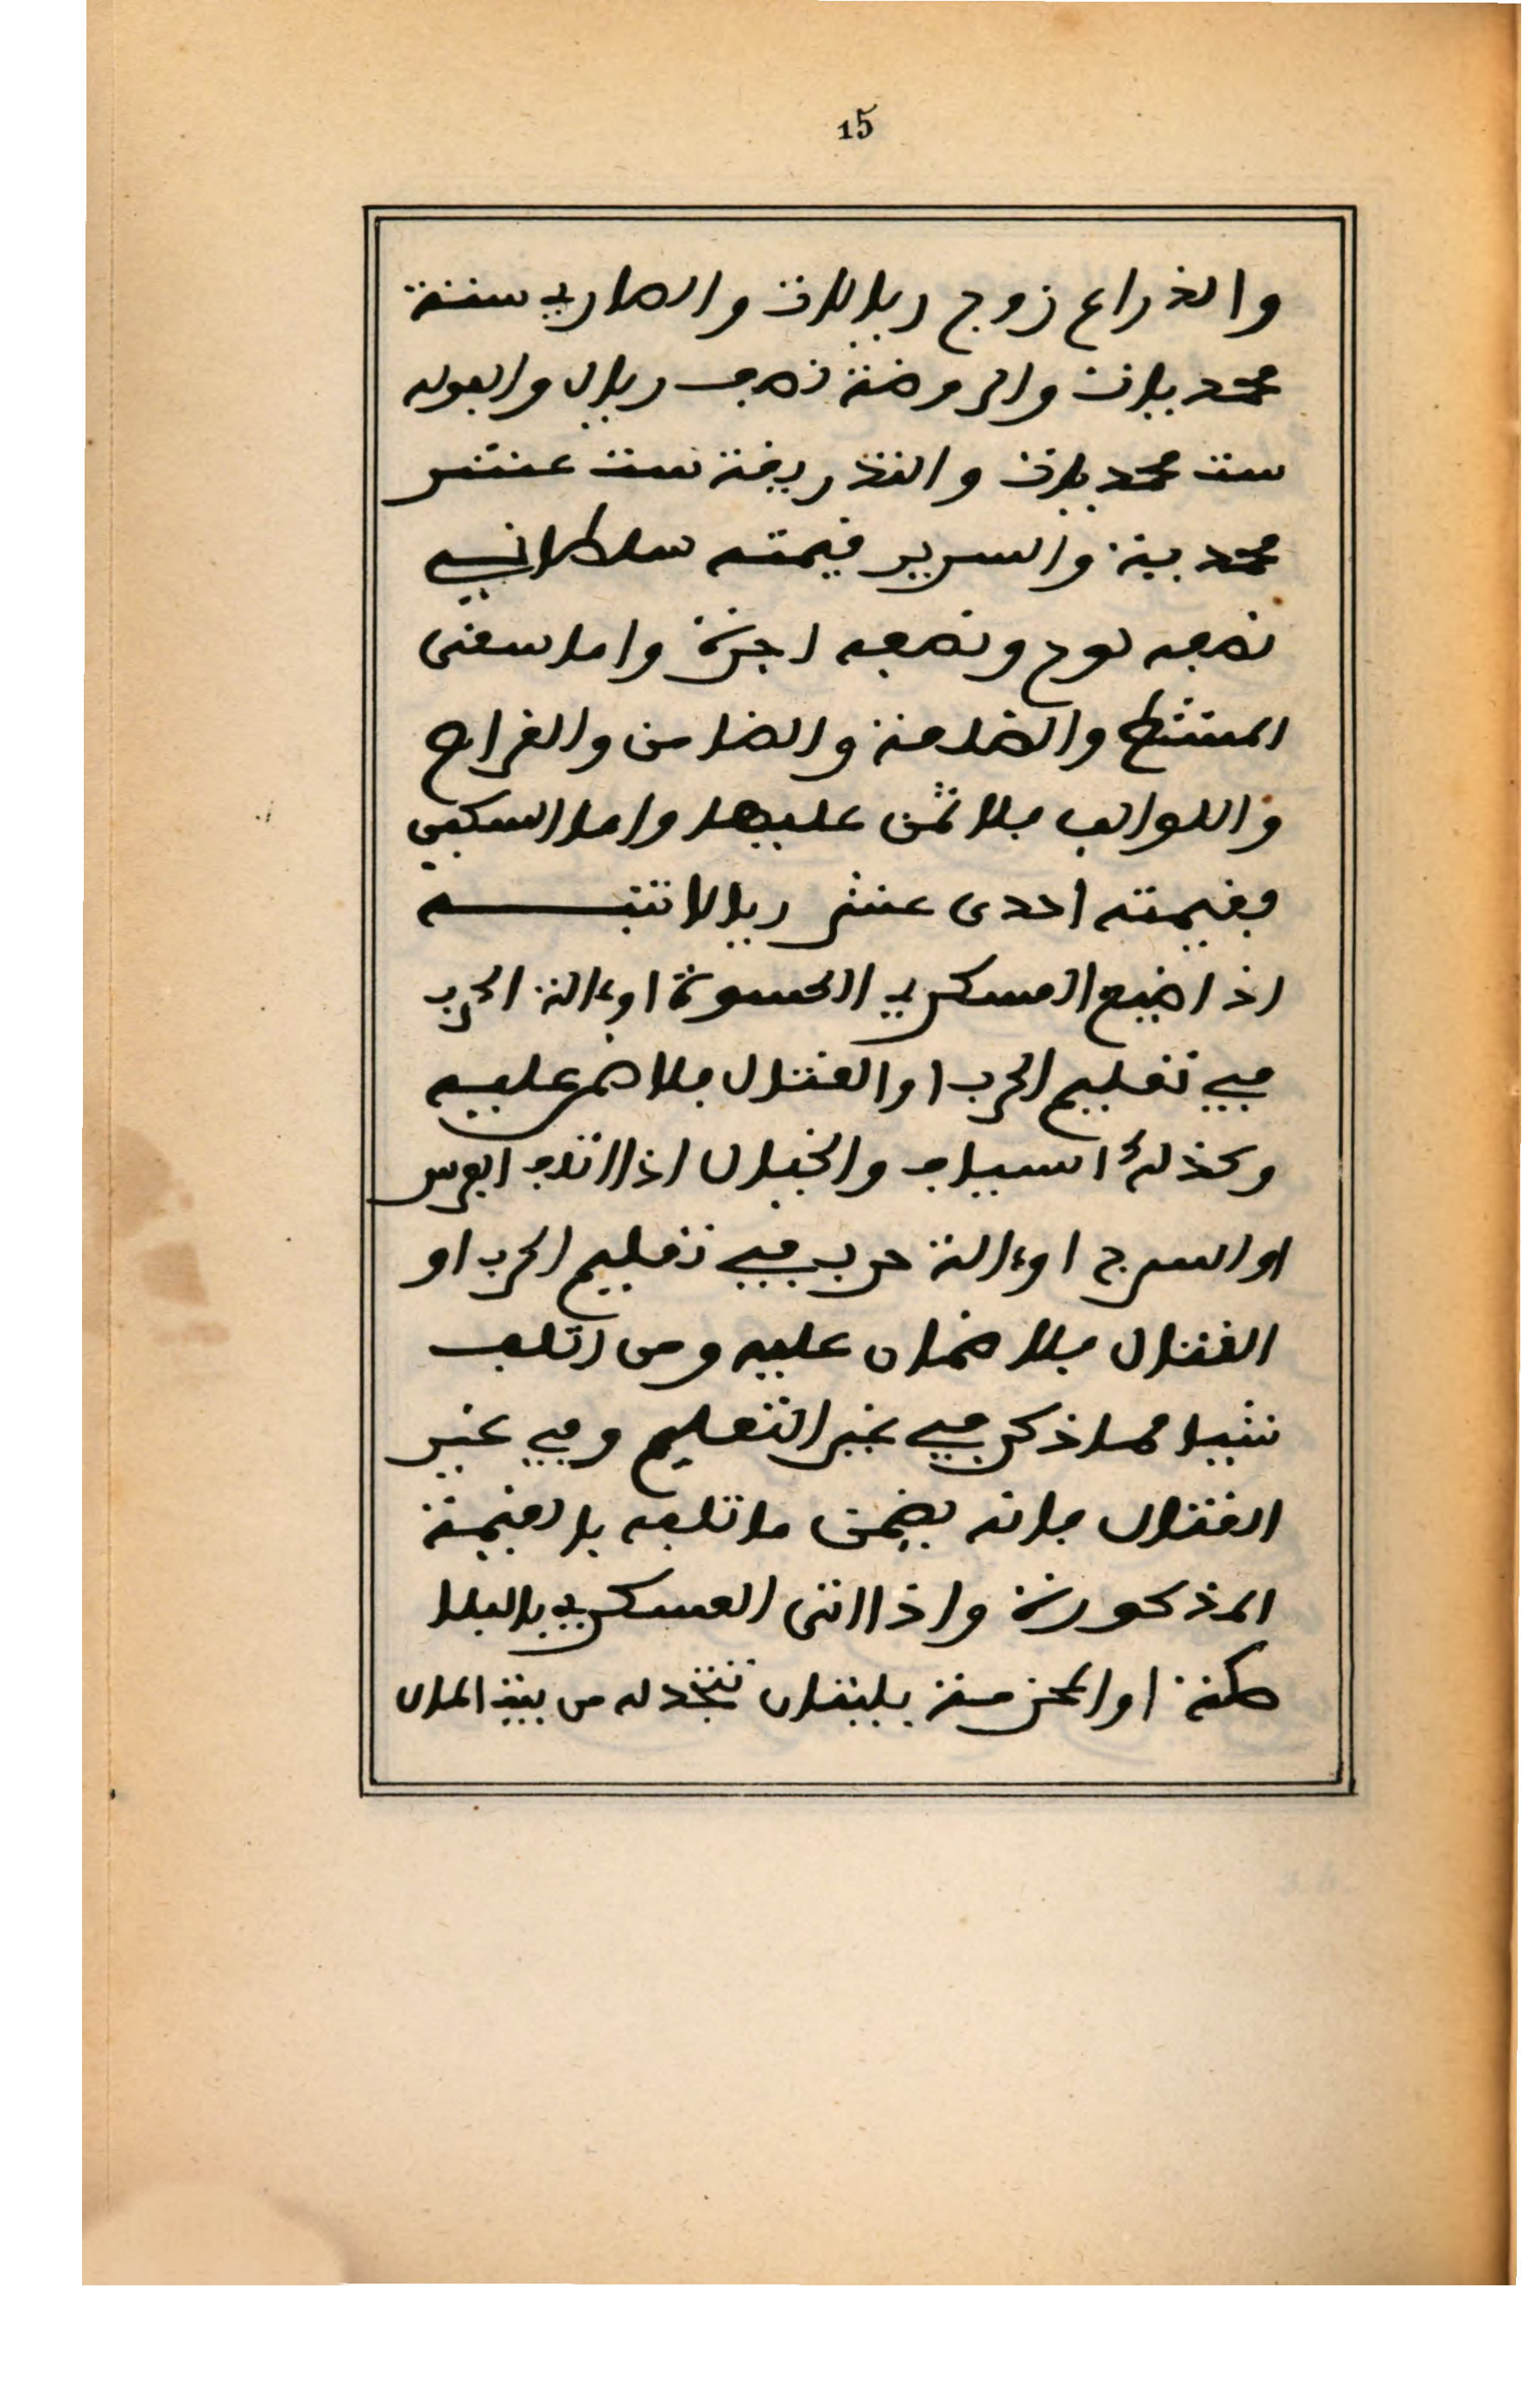 15
والذراع زوج ريالات والصاري ستة
محمديات والروضة نصف ريال والفولة
ست محمديات والتذريقة ست عشر
محمدية والسرير قيمته سلطاني
نصفه لوح ونصفه اجرة واما سقى
المشط والضامنة والضامن والفراح
واللوالب فلا ثمن عليها واما السكين
فقيمته احدى عشر ريالا تنبيه
اذا ضيع العسكري الكسوة او ءالة الحرب
في تعليم الحرب او القتال فلا ضمر عليه
وكذلك السياف والخيال اذا اتلف الفرس
او السرج او ءالة حرب في تعليم الحرب او
القتال فلا ضمان عليه ومن اتلف
شيا مما ذكر في غير التعليم وفي غير
القتال فانه يضمن ما تلفه بالقيمة
المذكورة واذا اتى العسكري بالبلا
صكة او المحزمة يليقان تتخد له من بيت المال